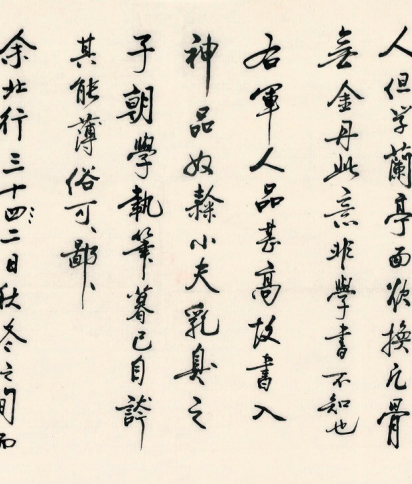 人但学蘭亭面欲換凡骨
無金丹此意非學書不知也
右軍人品甚高故書入
神品奴隸小夫乳臭之
子朝學執筆暮已自誇
其能薄俗可鄙
余北行三十四二日秋冬之間而